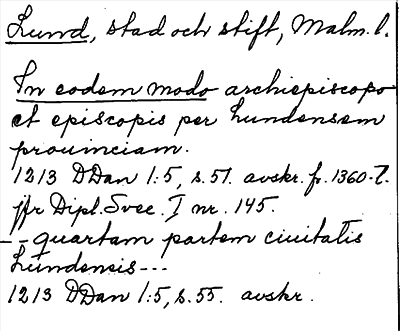 Lund, stad och stift, Malm. l.
In eodem modo archiepiscopo
et episcopis per Lundensem
prouinciam.
1213 DDan 1:5, s. 51. avskr. fr. 1360-t.
jfr Dipl. Svec. I nr. 145.
-- quartam partem ciuitatis
Lundensis ---
1213 DDan 1:5, s. 55. avskr.